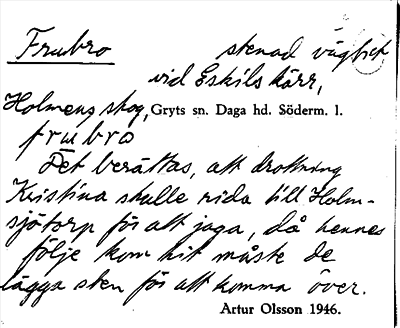 Frubro stenad vägbit
vid Eskils kärr,
Holmens skog, Gryts sn. Daga hd. Söderm. l.
frubro
Det berättas, att drottning
Kristina skulle rida till Holm-
sjötorp för att jaga, då hennes
följe kom hit måste de
lägga sten för att komma över.
Artur Olsson 1946.